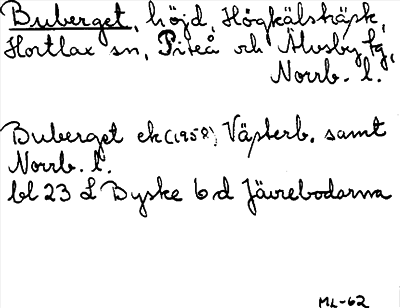 Buberget, höjd, Högkälskäpk,
Hortlax sn, Piteå och Älvsby tg,
Norrb. l.
Buberget ek (1958) Västerb. samt
Norrb. l.
bl 23 L Byske 6 d Jävrebodarna
ML-62